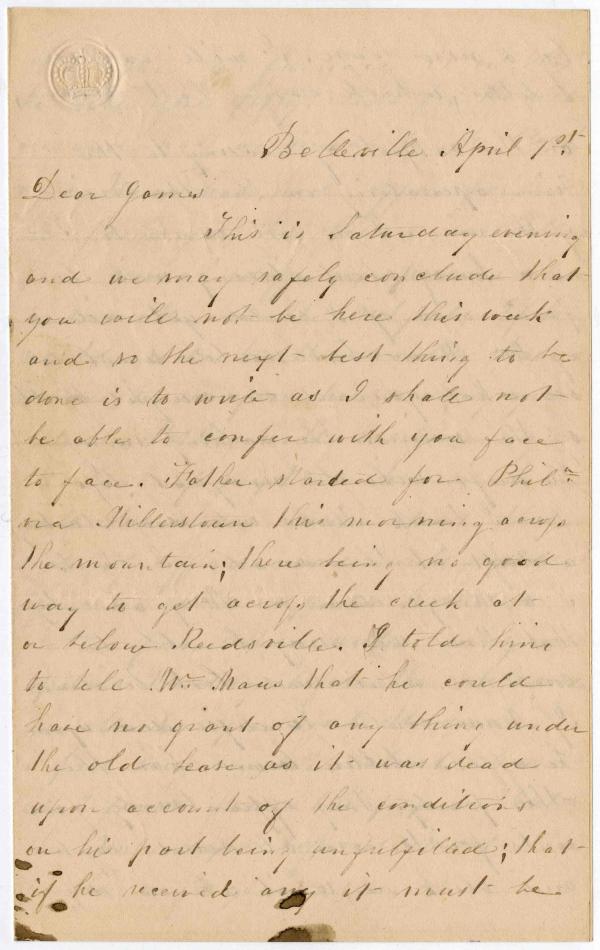 Belleville April 1st.
Dear James
This is Saturday evening
and we may safely conclude that
you will not be here this week
and so the next best thing to be
done is to write as I shall not
be able to confer with you face
to face. Father started for Phila
via Millerstown this morning across
the mountain; there being no good
way to get across the creek at
or below Reedsville. I told him
to tell Wm Maus that he could
have no grant of any thing under
the old lease as it was dead
upon account of the conditions
on his part being unfulfilled; that
if he received any it must be